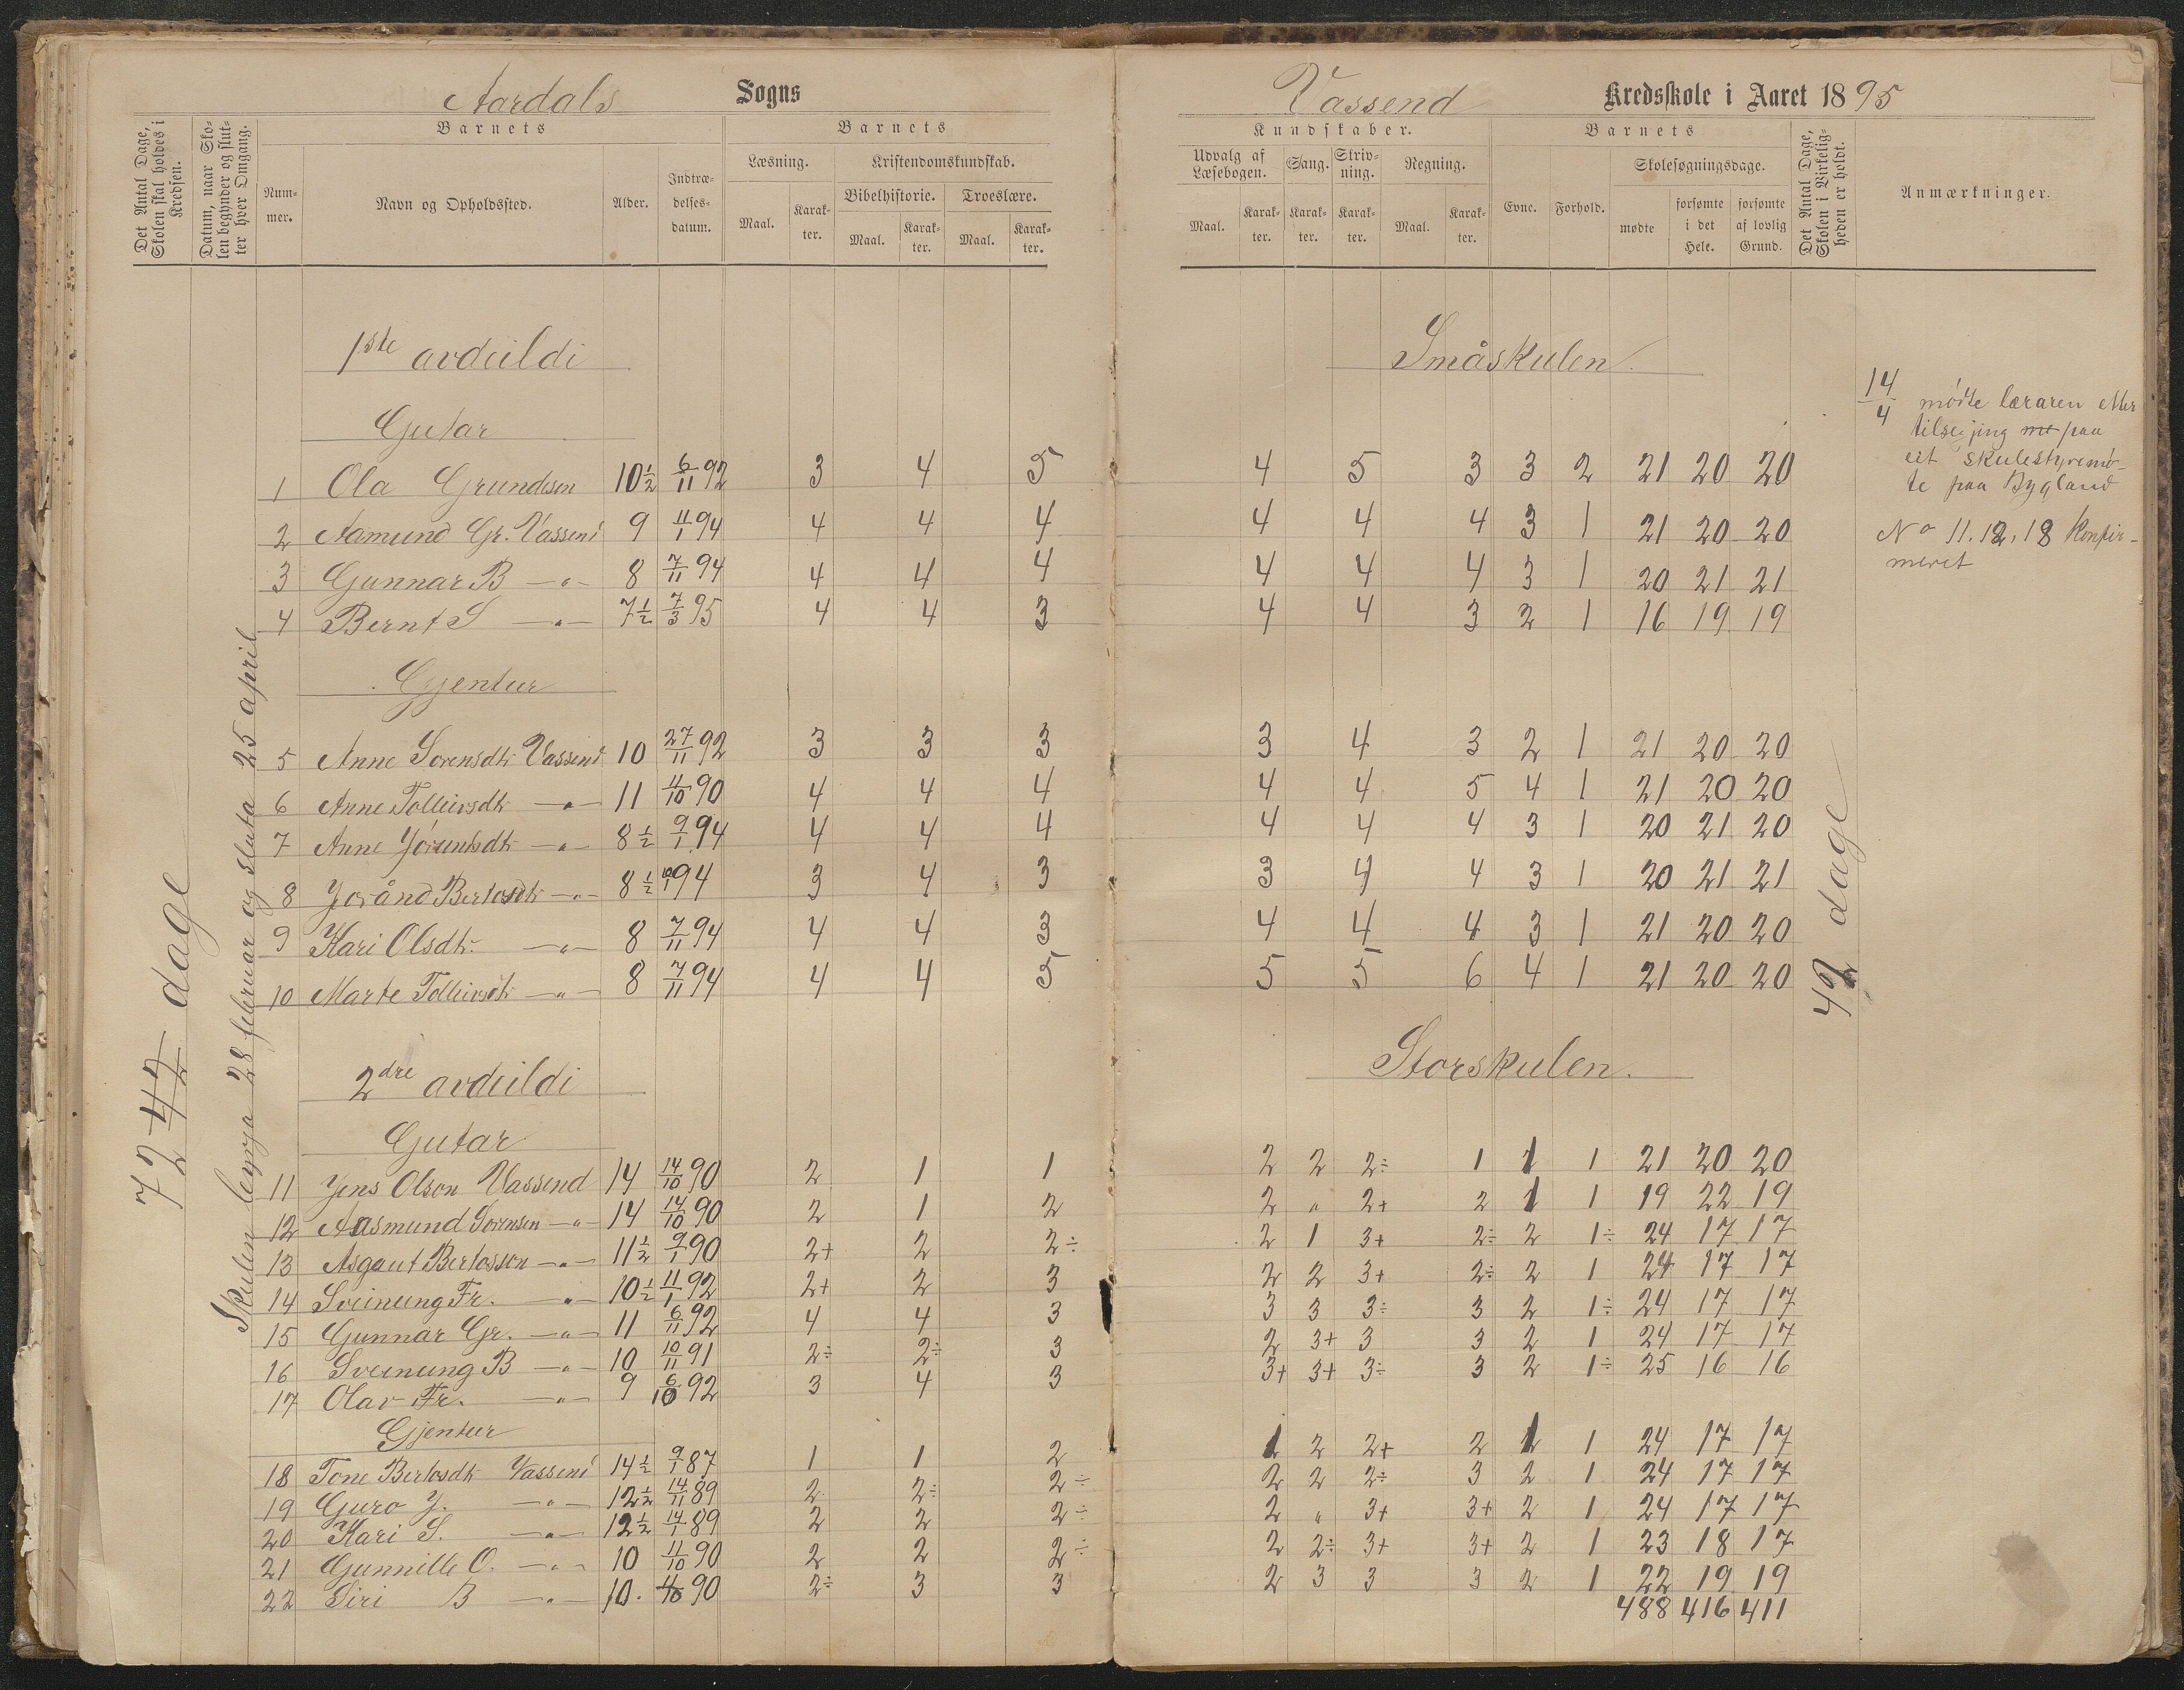 Aardals Sogns
Vassend Kredsskole i Aaret 1895
Det Antal Dage, Skolen skal holdes i Kredsen.
Datum, naar Skolen begynder og slutter hver Omgang.
Barnets
Nummer.
Navn og Opholdssted.
Alder.
Indtrædelsesdatum.
Barnets
Læsning.
Maal.
Karakter.
Kristendomskundskab.
Bibelhistorie.
Maal.
Karakter.
Troeslære.
Maal.
Karakter.
Kundskaber.
Udvalg af Læsebogen.
Maal.
Karakter.
Sang.
Karakter.
Skrivning.
Karakter.
Regning.
Maal.
Karakter.
Barnets
Evne.
Forhold.
Skolesøgningsdage.
mødte
forsømte i det Hele.
forsømte af lovlig Grund.
Det Antal Dage, Skolen i Virkeligheden er holdt.
Anmærkninger.
72 42 dage
Skulen begynja 28 februar og sluta 25 april
1ste avdeildi
Småskulen.
Gutar
1 Ola Grundesen 10½ 6/11 92 3 4 5 4 5 3 3 2 21 20 20
2 Aamund Gr. Vassend 9 11/1 94 4 4 4 4 4 4 3 1 21 20 20
3 Gunnar B —„— 8 7/11 94 4 4 4 4 4 4 3 1 20 21 21
4 Bernt S —„— 7½ 7/3 95 4 4 3 4 4 3 2 1 16 19 19
Gjentur
5 Anne Sorensdtr Vassend 10 27/11 92 3 3 3 3 4 3 2 1 21 20 20
6 Anne Tolleivsdtr —„— 11 11/10 90 4 4 4 4 4 5 4 1 21 20 20
7 Anne Jorundsdtr —„— 8½ 9/1 94 4 4 4 4 4 4 3 1 20 21 20
8 Joránd Bertosdtr —„— 8½ 10/1 94 3 4 3 3 4 4 3 1 20 21 21
9 Kari Olsdtr. —„— 8 7/11 94 4 4 3 4 4 4 3 1 21 20 20
10 Marte Tolleivsdtr —„— 8 7/11 94 4 4 5 5 5 6 4 1 21 20 20
42 dage
2dre avdeildi
Storskulen.
Gutar
11 Jens Olson Vassend 14 14/10 90 2 1 1 2 2 2÷ 1 1 1 21 20 20
12 Aasmund Sorensen —„— 14 14/10 90 2 1 2 2 „ 2+ 2 1 1 19 22 19
13 Asgaut Bertosson —„— 11½ 9/1 90 2+ 2 2÷ 2 1 3+ 2÷ 2 1÷ 24 17 17
14 Sveinung Fr. —„— 10½ 11/1 92 2+ 2 3 2 2 3+ 2÷ 2 1 24 17 17
15 Gunnar Gr. —„— 11 6/11 92 4 4 3 3 3 3÷ 3 2 1÷ 24 17 17
16 Sveinung B —„— 10 10/11 91 2÷ 2÷ 3 2 3+ 3 3 2 1 24 17 17
17 Olav Fr. —„— 9 6/10 92 3 4 3 3+ 3+ 3÷ 3 2 1÷ 25 16 16
Gjentur
18 Tone Bertosdtr Vassend 14½ 9/1 87 1 1 2 1 2 2+ 2 1 1 24 17 17
19 Guro J. —„— 12½ 14/11 89 2 2÷ 2÷ 2 2 2÷ 3 2 1 24 17 17
20 Kari S. —„— 12½ 14/1 89 2 2 2÷ 2 „ 3+ 3+ 2 1 24 17 17
21 Gunnille O. —„— 10 11/10 90 2 2 2÷ 2 2÷ 3+ 3+ 2 1 23 18 17
22 Siri B —„— 10. 11/10 90 2÷ 3 3 2 3 3 3 2 1 22 19 19
488 416 411
14/4 møtte læraren etter
tilsegjing me paa
eit skulestyremø-
te paa Bygland
No 11. 12, 18 Konfir-
meret